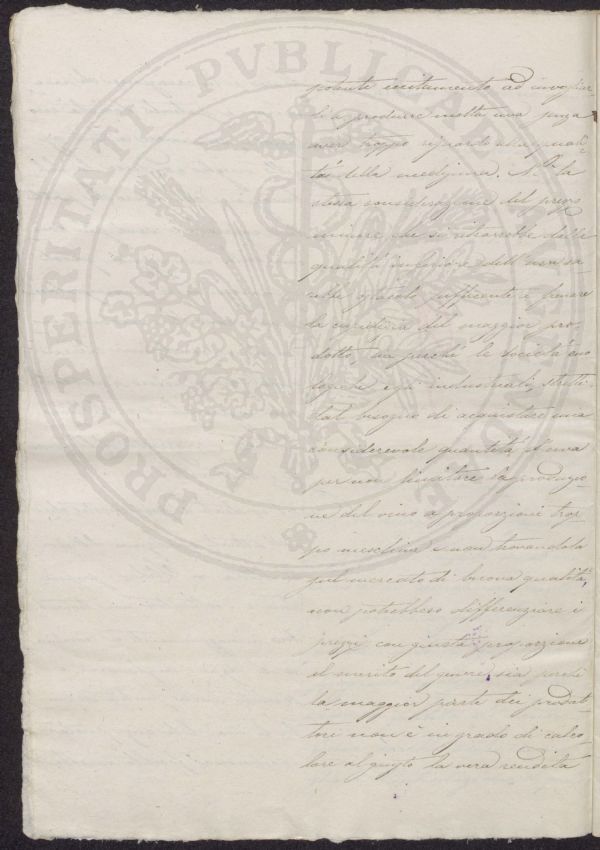 PROSPERITATI PVBLICAE
potente incitamento ad invogliar
li a produrre molta uva senza
aver troppo riguardo alla quali
tà della medesima. Nè la
stessa considerazione del prezzo
minore che si ritrarrebbe dalle
qualità inferiore dell'uva sa
rebbe ostacolo sufficiente a frenare
la cupidigia del maggior pro
dotto, sia perchè le società eno
logiche e gli industriali, stretti
dal bisogno di acquistare una
considerevole quantità d'uva
per non limitare la produzio
ne del vino a proporzioni trop
po meschine e non trovandola
sul mercato di buona qualità,
non potrebbero differenziare i
prezzi con giusta proporzione
al merito del genere, sia perchè
la maggior parte dei produt
tori non è in grado di calco
lare al giusto la vera rendita